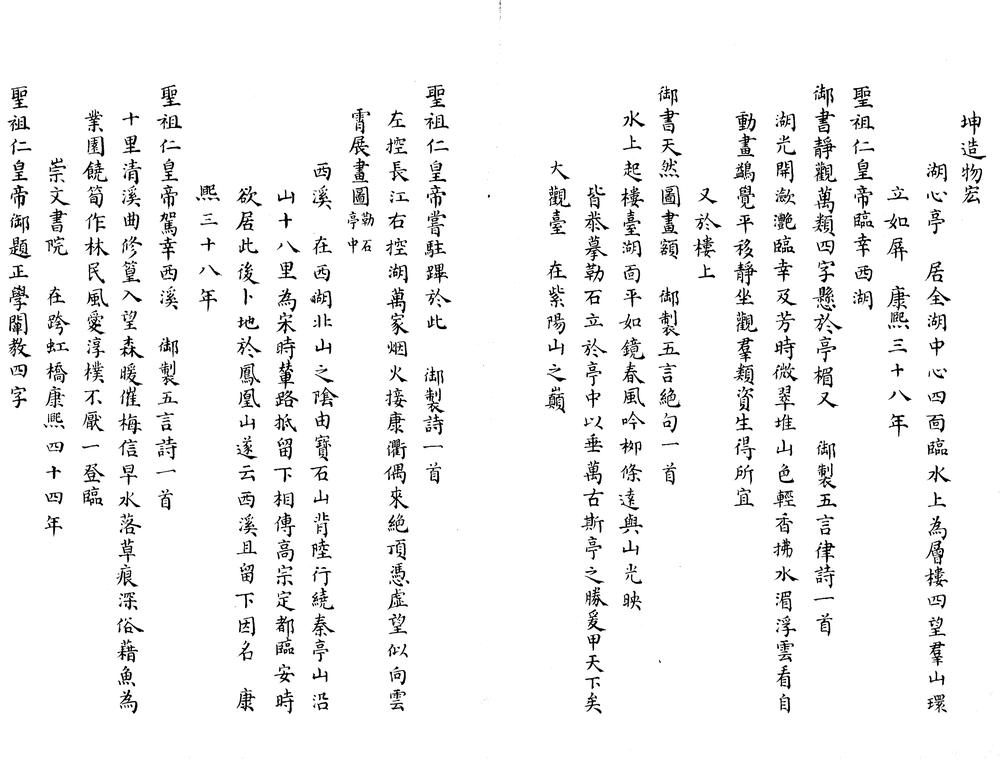 坤造物宏
湖心亭　居全湖中心四面臨水上為層樓四望羣山環
立如屏　康熙三十八年
聖祖仁皇帝臨幸西湖
御書靜觀萬類四字懸於亭楣又　御製五言律詩一首
湖光開瀲灔臨幸及芳時微翠堆山色輕香拂水湄浮雲看自
動畫鷁覺平移靜坐觀羣類資生得所宜
又於樓上
御書天然圖畫額　御製五言絶句一首
水上起樓臺湖面平如鏡春風吟柳條遠與山光映
皆恭摹勒石立於亭中以垂萬古斯亭之勝爰甲天下矣
大觀臺　在紫陽山之巔
聖祖仁皇帝嘗駐蹕於此　御製詩一首
左控長江右控湖萬家烟火接康衢偶來絶頂憑虛望似向雲
霄展畫圖勒石亭中
西溪　在西湖北山之陰由寶石山背陸行繞秦亭山沿
山十八里為宋時輦路抵留下相傳高宗定都臨安時
欲居此後卜地於鳳凰山遂云西溪且留下因名　康
熙三十八年
聖祖仁皇帝駕幸西溪　御製五言詩一首
十里清溪曲修篁入望森暖催梅信早水落草痕深俗藉魚為
業園饒筍作林民風愛淳樸不厭一登臨
崇文書院　在跨虹橋康熙四十四年
聖祖仁皇帝御題正學闡教四字